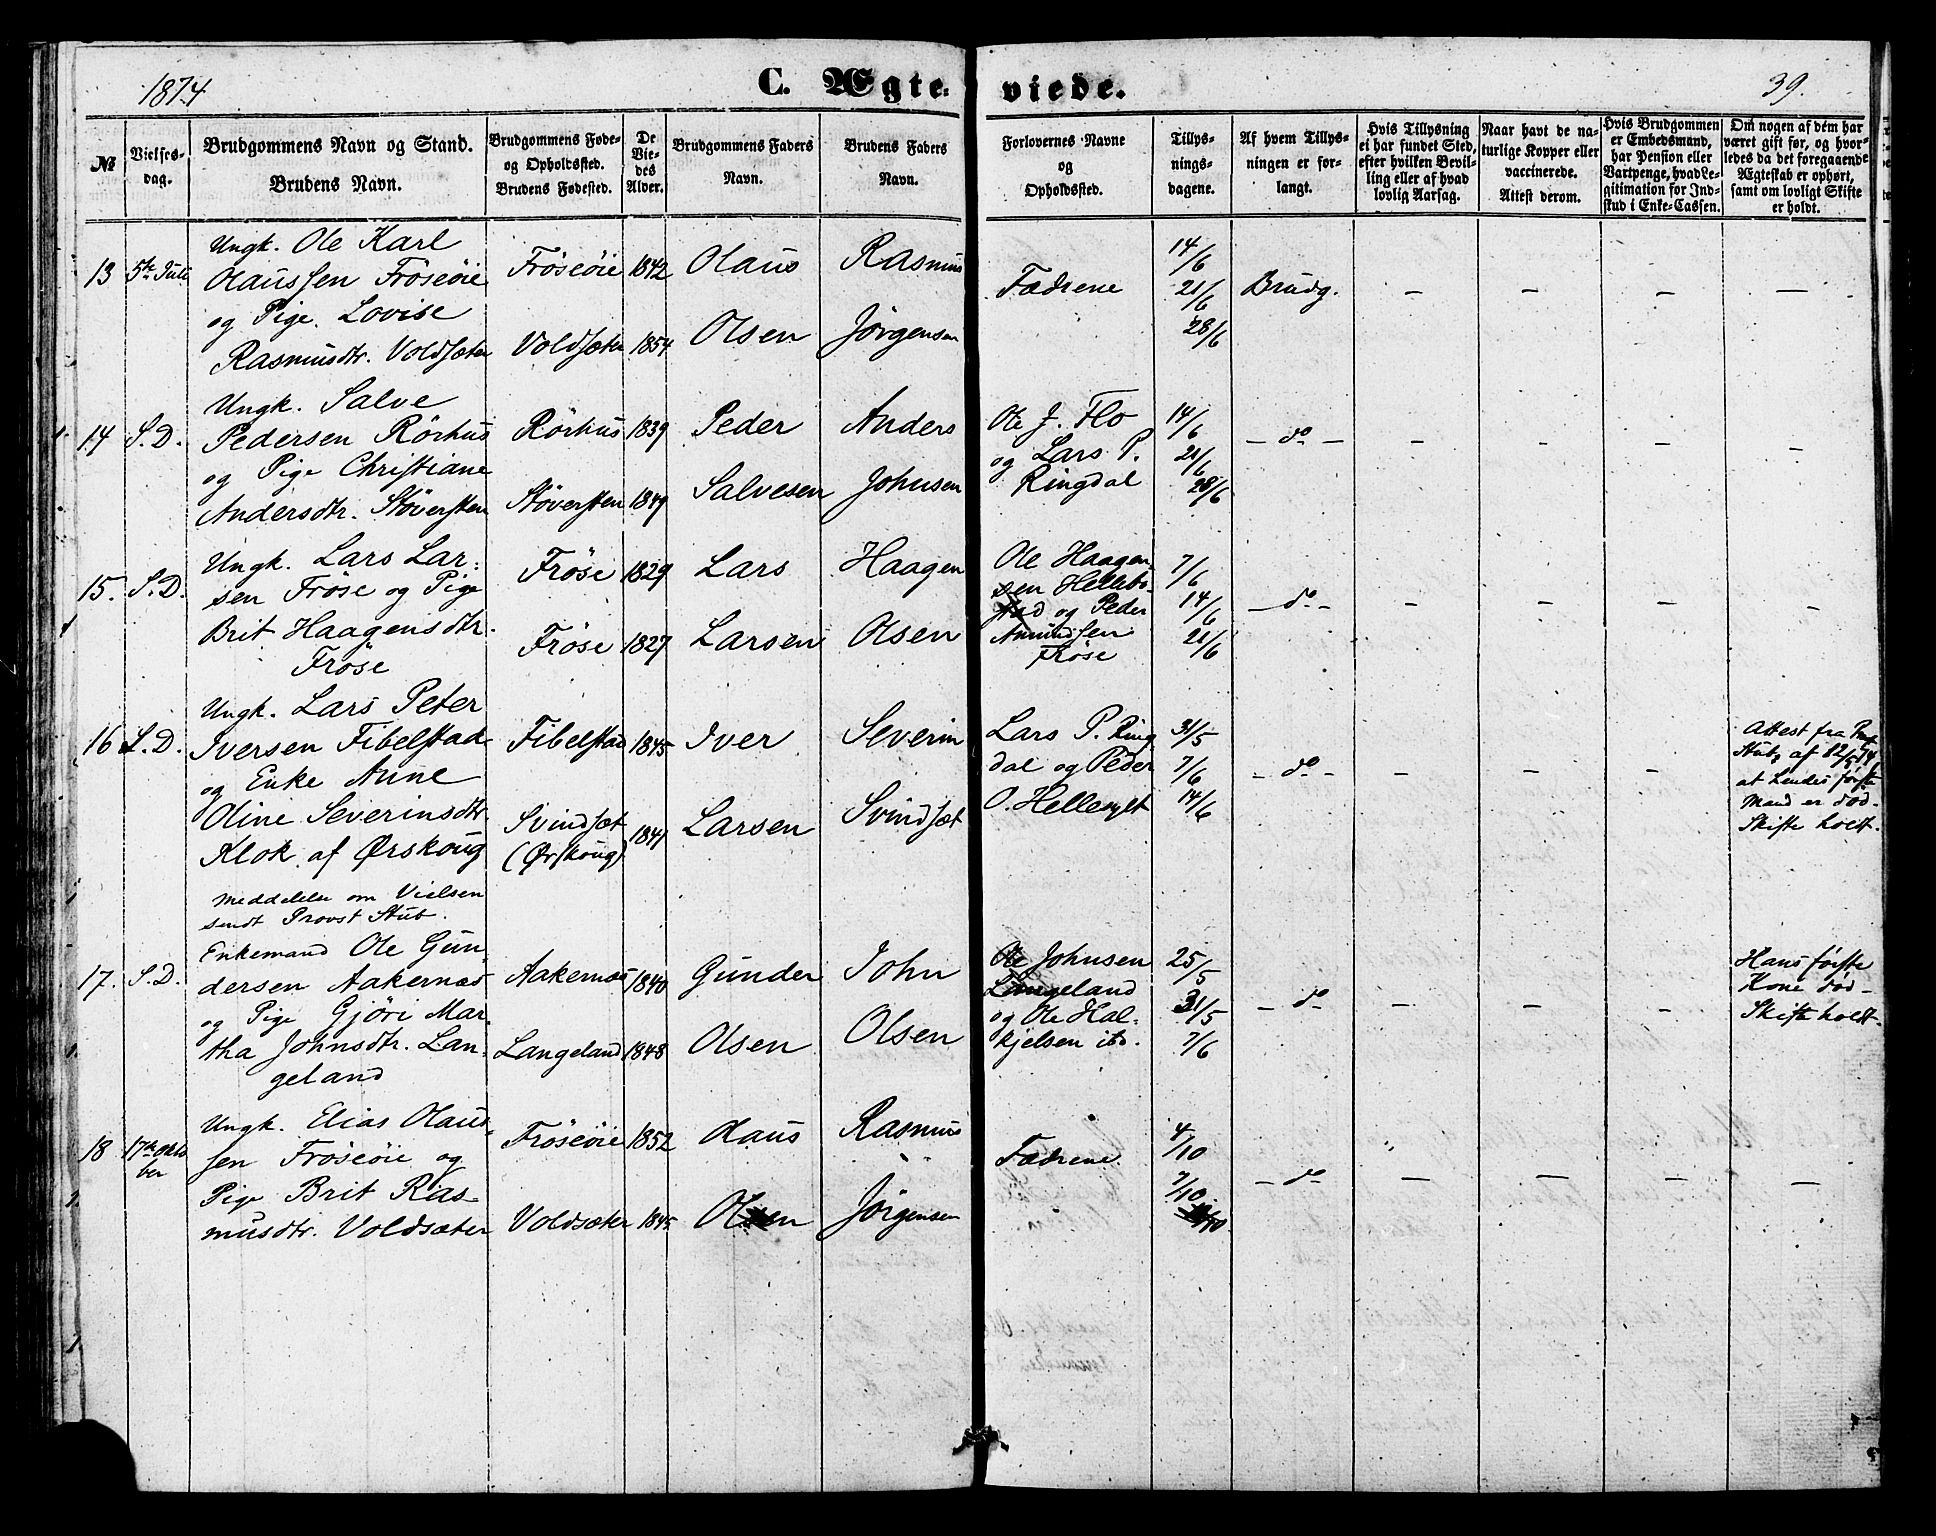 1874
C. Ægteviede.
39.
№
Vielses-
dag.
Brudgommens Navn og Stand.
Brudens Navn.
Brudgommens Føde-
og Opholdssted.
Brudens Fødested.
De
Vie-
des
Alder.
Brudgommens Faders
Navn.
Brudens Faders
Navn.
Forlovernes Navne
og
Opholdssted.
Tillys-
nings-
dagene.
Af hvem Tillys-
ningen er for-
langt.
Hvis Tillysning
ei har fundet Sted,
efter hvilken Bevil-
ling eller af hvad
lovlig Aarsag.
Naar havt de na-
turlige Kopper eller
vaccinerede.
Attest derom.
Hvis Brudgommen
er Embedsmand,
har Pension eller
Vartpenge, hvad Le-
gitimation for Ind-
skud i Enke-Cassen.
Om nogen af dem har
været gift før, og hvor-
ledes da det foregaaende
Ægteskab er ophørt,
samt om lovligt Skifte
er holdt.
13 5te Juli
Ungk. Ole Karl
Olaussen Fröseöie
og Pige. Lovise
Rasmusdtr. Voldsæter
Fröseöie 1842
Voldsæter 1854
Olaus
Olsen
Rasmus
Jörgensen
Fædrene
14/6
21/6
28/6
Brudg. — — — —
14 S.D.
Ungk. Salve
Pedersen Rörhus
og Pige Christiane
Andersdtr. Stöversten
Rörhus 1839
Stöversten 1849
Peder
Salvesen
Anders
Johnsen
Ole J. Flo
og Lars P.
Ringdal
14/6
21/6
28/6
— do — — — — —
15. S.D.
Ungk. Lars Lar-
sen Fröse og Pige
Brit Haagensdtr.
Fröse
Fröse 1829
Fröse 1827
Lars
Larsen
Haagen
Olsen
Ole Haagen-
sen Hellebo-
stad og Peder
Amundsen
Fröse
7/6
14/6
21/6
— do — — — — —
16 S.D.
Ungk. Lars Peter
Iversen Fibelstad
og Enke Anne
Oline Severinsdtr.
Klok af Ørskoug
Meddelelse om Vielsen
sendt Provst Stub.
Fibelstad 1845
Svindsæt
(Ørskoug)
Iver
Larsen
Severin
Svindsæt
Lars P. Ring
dal og Peder
O. Hellesylt
31/5
7/6
14/6
— do — — — —
Attest fra
Stub, af
at
Mand er död-
Skifte holdt.
17. S.D.
Enkemand Ole Gun-
dersen Aakernæs
og Pige Gjöri Mar-
tha Johnsdtr. Lan-
geland
Aakernæs 1840
Langeland 1848
Gunder
Olsen
John
Olsen
Ole Johnsen
Langeland
og Ole Hal-
kjelsen ibd.
25/5
31/5
7/6
— do — — — —
Hans förste
Kone död-
Skifte holdt.
18 17de Okto
ber
Ungk. Elias Olaus-
sen Fröseöie og
Pige Brit Ras-
musdtr. Voldsæter
Fröseöie 1852
Voldsæter 1845
Olaus
Olsen
Rasmus
Jörgensen
Fædrene
4/10
7/10
— do — — — — —